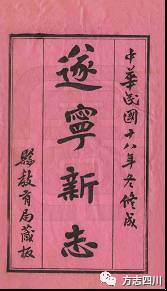 中華民國十八年冬修成
遂寧新志
縣教育局藏板
方志四川